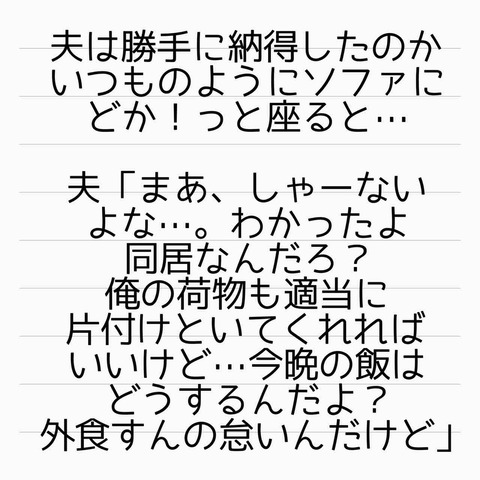 夫は勝手に納得したのか
いつものようにソファに
どか！っと座ると…
夫「まあ、しゃーない
よな…。わかったよ
同居なんだろ？
俺の荷物も適当に
片付けといてくれれば
いいけど…今晩の飯は
どうするんだよ？
外食すんの怠いんだけど」